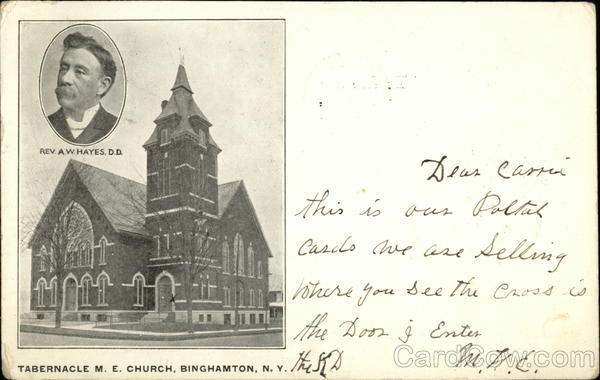 REV. A.W. HAYES, D.D.
TABERNACLE M. E. CHURCH, BINGHAMTON, N. Y.
Dear Carrie
this is our Postal
Cards we are Selling
Where you See the Cross is
the Door I Enter
the
CardCow.com